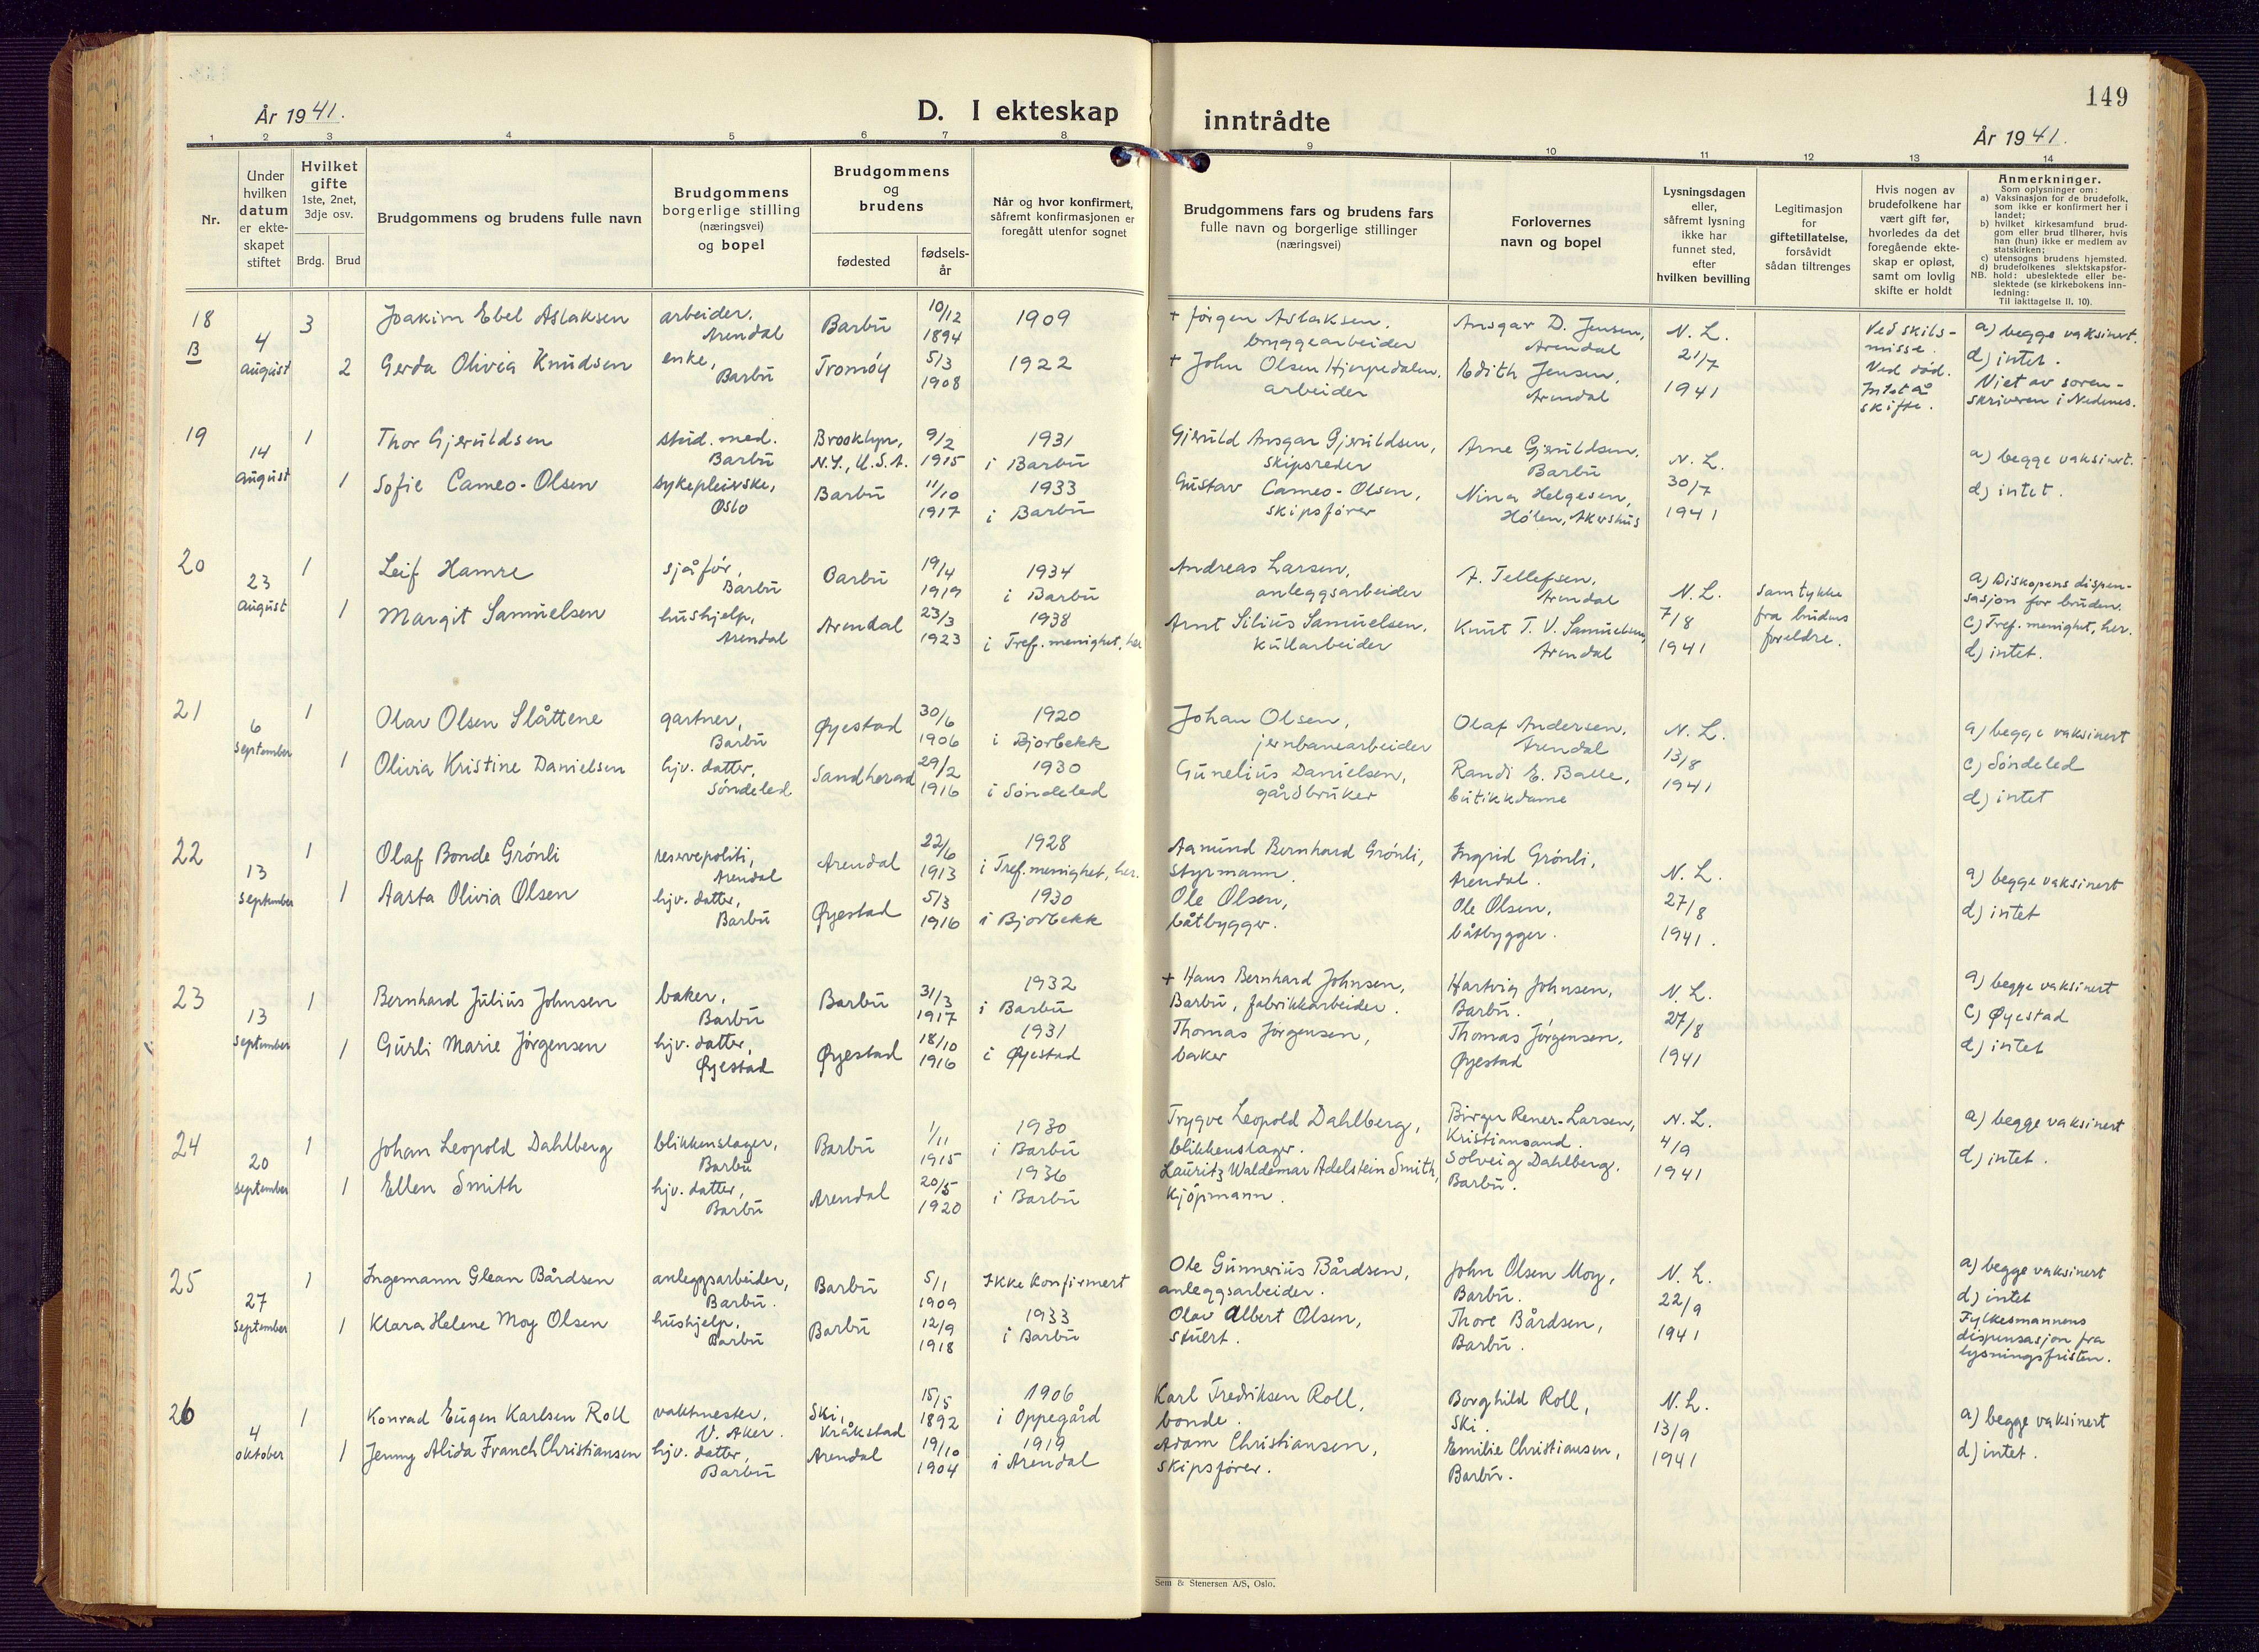 149
År 1941.
D. I ekteskap inntrådte
År 1941.
1 2 3 4 5 6 7 8 9 10 11 12 13 14
Nr.
Under
hvilken
datum
er ekte-
skapet
stiftet
Hvilket
gifte
1ste, 2net,
3dje osv.
Brdg. Brud
Brudgommens og brudens fulle navn
Brudgommens
borgerlige stilling
(næringsvei)
og bopel
Brudgommens
og
brudens
fødested
fødsels-
år
Når og hvor konfirmert,
såfremt konfirmasjonen er
foregått utenfor sognet
Brudgommens fars og brudens fars
fulle navn og borgerlige stillinger
(næringsvei)
Forlovernes
navn og bopel
Lysningsdagen
eller,
såfremt lysning
ikke har
funnet sted,
efter
hvilken bevilling
Legitimasjon
for
giftetillatelse,
forsåvidt
sådan tiltrenges
Hvis nogen av
brudefolkene har
vært gift før,
hvorledes da det
foregående ekte-
skap er opløst,
samt om lovlig
skifte er holdt
Anmerkninger.
Som oplysninger om:
a) Vaksinasjon for de brudefolk,
som ikke er konfirmert her i
landet;
b) hvilket kirkesamfund brud-
gom eller brud tilhører, hvis
han (hun) ikke er medlem av
statskirken;
c) utensogns brudens hjemsted.
d) brudefolkenes slektskapsfor-
hold: ubeslektede eller be-
slektede (se kirkebokens inn-
ledning:
NB.
Til iakttagelse II. 10).
18
B
4
august
3
Joakim Ebel Aslaksen
arbeider,
Arendal
Barbu
10/12
1894
1909
+ Jørgen Aslaksen,
bryggearbeider
Ansgar D. Jensen,
Arendal
N. L.
21/7
1941
Ved skils-
misse.
Ved død.
Intet å
skifte.
a) begge vaksinert.
d) intet.
Viet av soren-
skriveren i Nedenes.
2
Gerda Olivia Knudsen
enke,
Barbu
Tromøy
5/3
1908
1922
+ John Olsen Hjerpedalen,
arbeider
Edith Jensen,
Arendal
19
14
august
1
Thor Gjeruldsen
stud. med.
Barbu
Brooklyn,
N.Y., U.S.A.
9/2
1915
1931
i Barbu
Gjeruld Ansgar Gjeruldsen,
skipsreder
Arne Gjeruldsen,
Barbu
N. L.
30/7
1941
a) begge vaksinert.
d) intet.
1
Sofie Cameo-Olsen
sykepleierske,
Oslo
Barbu
11/10
1917
1933
i Barbu
Gustav Cameo-Olsen,
skipsfører
Nina Helgesen,
Hølen, Akershus
20
23
august
1
Leif Hamre
sjåfør,
Barbu
Barbu
19/4
1919
1934
i Barbu
Andreas Larsen,
anleggsarbeider
F. Tellefsen,
Arendal
N. L.
7/8
1941
samtykke
fra brudens
foreldre.
a) Biskopens dispen-
sasjon for bruden.
c) Tref. menighet, her.
d) intet.
1
Margit Samuelsen
hushjelp,
Arendal
Arendal
23/3
1923
1938
i Tref. menighet, her
Arnt Silius Samuelsen,
kullarbeider
Knut T. V. Samuelsen,
Arendal
21
6
september
1
Olav Olsen Slåttene
gartner,
Barbu
Øyestad
30/6
1906
1920
i Bjorbekk
Johan Olsen,
jernbanearbeider
Olaf Andersen,
Arendal
N. L.
13/8
1941
a) begge vaksinert
c) Søndeled
d) intet
1
Olivia Kristine Danielsen
hjv. datter,
Søndeled
Sandherad
29/2
1916
1930
i Søndeled
Gunelius Danielsen,
gårdbruker
Randi E. Balle,
butikkdame
22
13
september
1
Olaf Bonde Grønli
reservepoliti,
Arendal
Arendal
22/6
1913
1928
i Tref. menighet, her.
Aamund Bernhard Grønli,
styrmann.
Ingrid Grønli,
Arendal.
N. L.
27/8
1941.
a) begge vaksinert
d) intet
1
Aasta Olivia Olsen
hjv. datter,
Barbu
Øyestad
5/3
1916
1930
i Bjorbekk
Ole Olsen,
båtbygger.
Ole Olsen,
båtbygger.
23
13
september
1
Bernhard Julius Johnsen
baker,
Barbu
Barbu
31/3
1917
1932
i Barbu
+ Hans Bernhard Johnsen,
Barbu, fabrikkarbeider.
Hartvig Johnsen,
Barbu.
N. L.
27/8
1941
a) begge vaksinert
c) Øyestad
d) intet
1
Gurli Marie Jørgensen
hjv. datter,
Øyestad
Øyestad
18/10
1916
1931
i Øyestad
Thomas Jørgensen,
baker
Thomas Jørgensen,
Øyestad
24
20
september
1
Johan Leopold Dahlberg
blikkenslager,
Barbu
Barbu
1/11
1915
1930
i Barbu
Trygve Leopold Dahlberg,
blikkenslager.
Birger Rener-Larsen,
Kristiansand.
N. L.
4/9
1941
a) begge vaksinert
d) intet.
1
Ellen Smith
hjv. datter,
Barbu
Arendal
20/5
1920
1936
i Barbu
Lauritz Waldemar Adelstein Smith,
kjøpmann.
Solveig Dahlberg,
Barbu.
25
27
september
1
Ingemann Glean Bårdsen
anleggsarbeider,
Barbu.
Barbu
5/1
1909
Ikke konfirmert
Ole Gunnerius Bårdsen,
anleggsarbeider.
John Olsen Moy,
Barbu.
N. L.
22/9
1941
a) begge vaksinert
d) intet
Fylkesmannens
dispensasjon fra
lysningsfristen.
1
Klara Helene Moy Olsen
hushjelp,
Barbu
Barbu
12/9
1918
1933
i Barbu
Olav Albert Olsen,
skuert.
Thore Bårdsen,
Barbu.
26
4
oktober
1
Konrad Eugen Karlsen Roll
vaktmester,
V. Aker.
Ski,
Kråkstad
15/5
1892
1906
i Oppegård
Karl Fredriksen Roll,
bonde.
Borghild Roll,
Ski.
N. L.
13/9
1941
a) begge vaksinert
d) intet.
1
Jenny Alida Franch Christiansen
hjv. datter,
Barbu
Arendal
19/10
1904
1919
i Arendal
Adam Christiansen,
skipsfører.
Emilie Christiansen,
Barbu.
Sem & Stenersen A/S, Oslo.